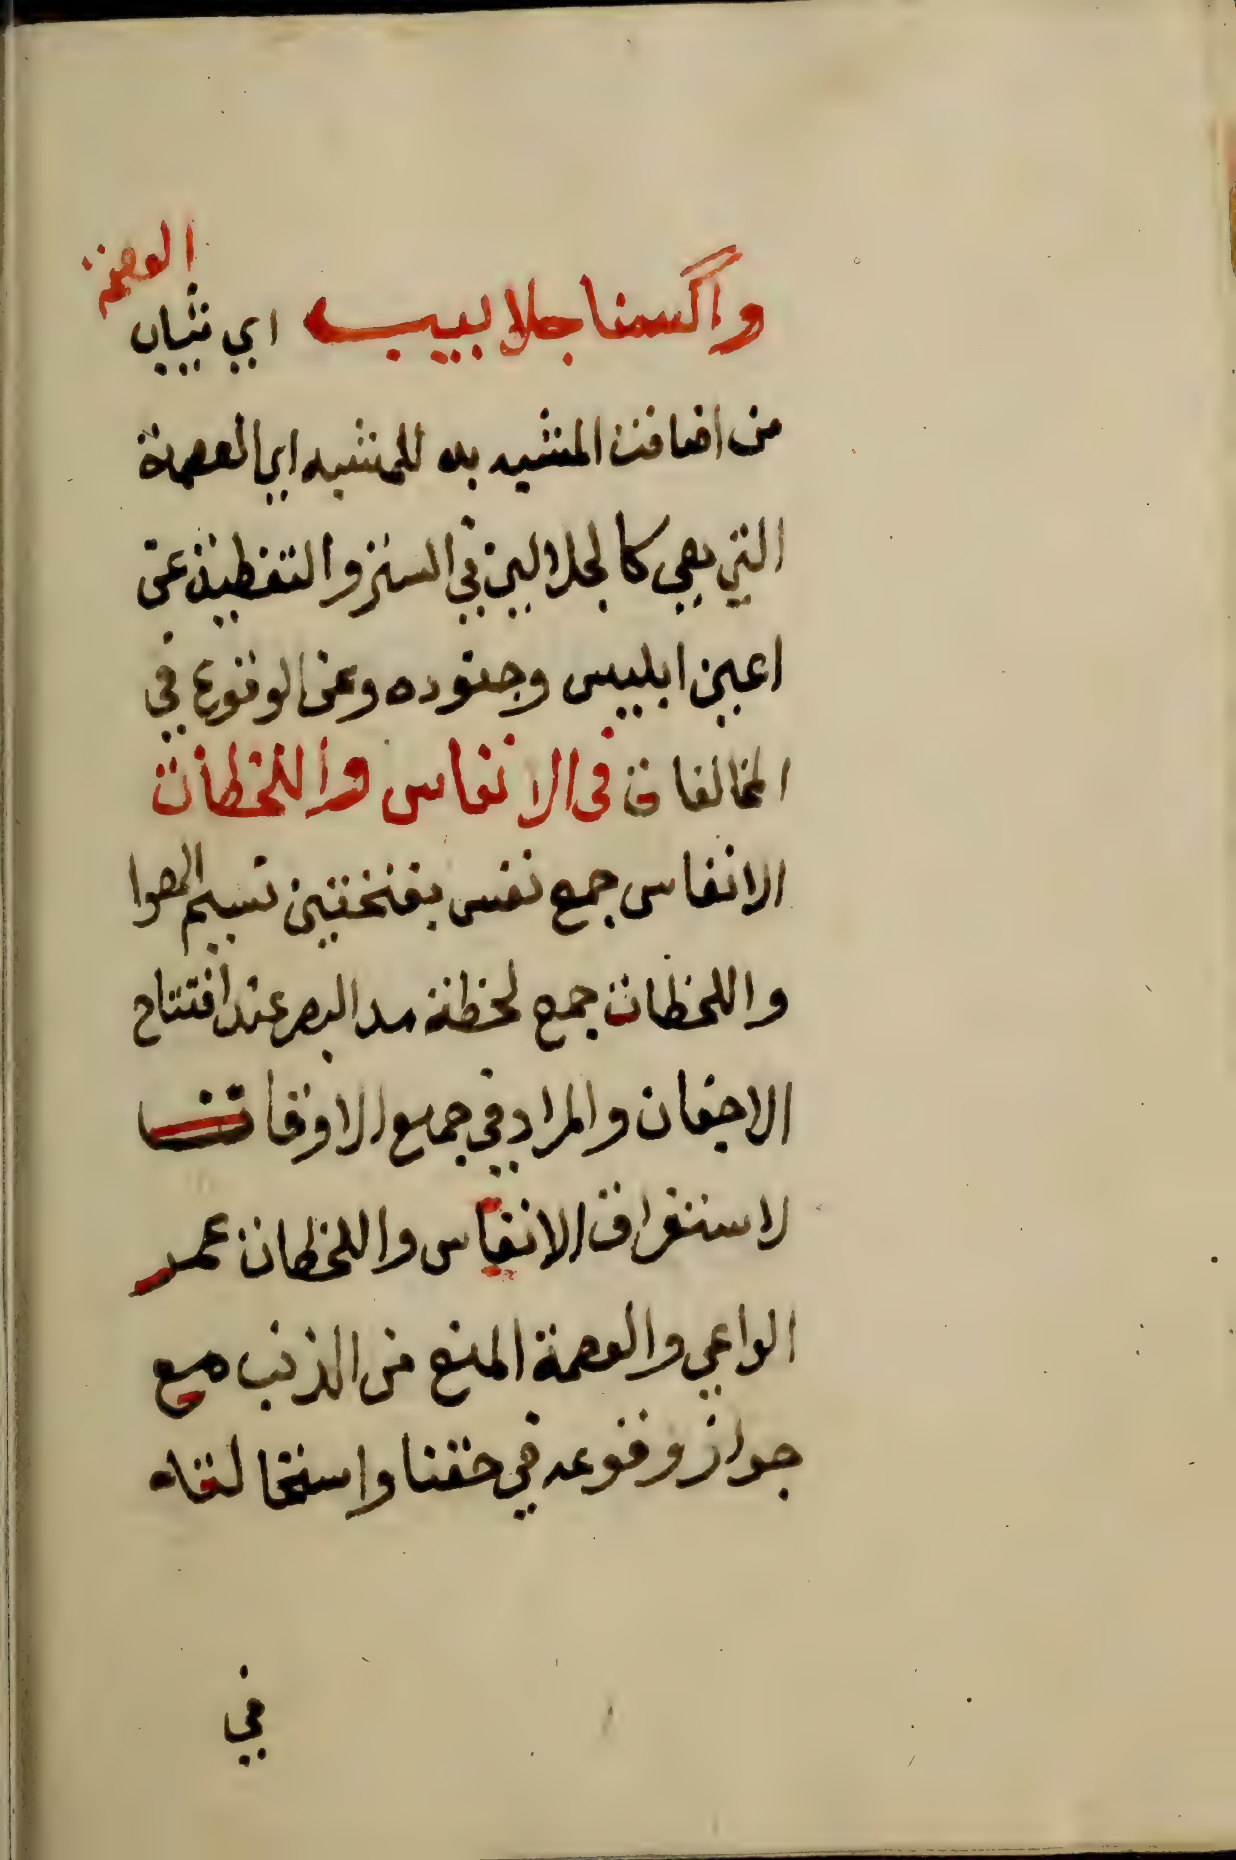 واكسنا جلابيبه اي ثياب العصمة
من اضافت المشبه به للمشبه اي العصمة
التي هي كالجلابيب في الستر والتغطية عن
اعين ابليس وجنوده وعن الوقوع في
المخالفات في الانفاس واللحظات
الانفاس جمع نفس بفتحتين نسيم الهوا
واللحظات جمع لحظة مد البصر عند افتتاح
الاجفان والمراد في جميع الاوقات
لاستغراق الانفاس واللحظات عمر
الداعي والعصمة المنع من الذنب مع
جواز وقوعه في حقنا واستحالته
في